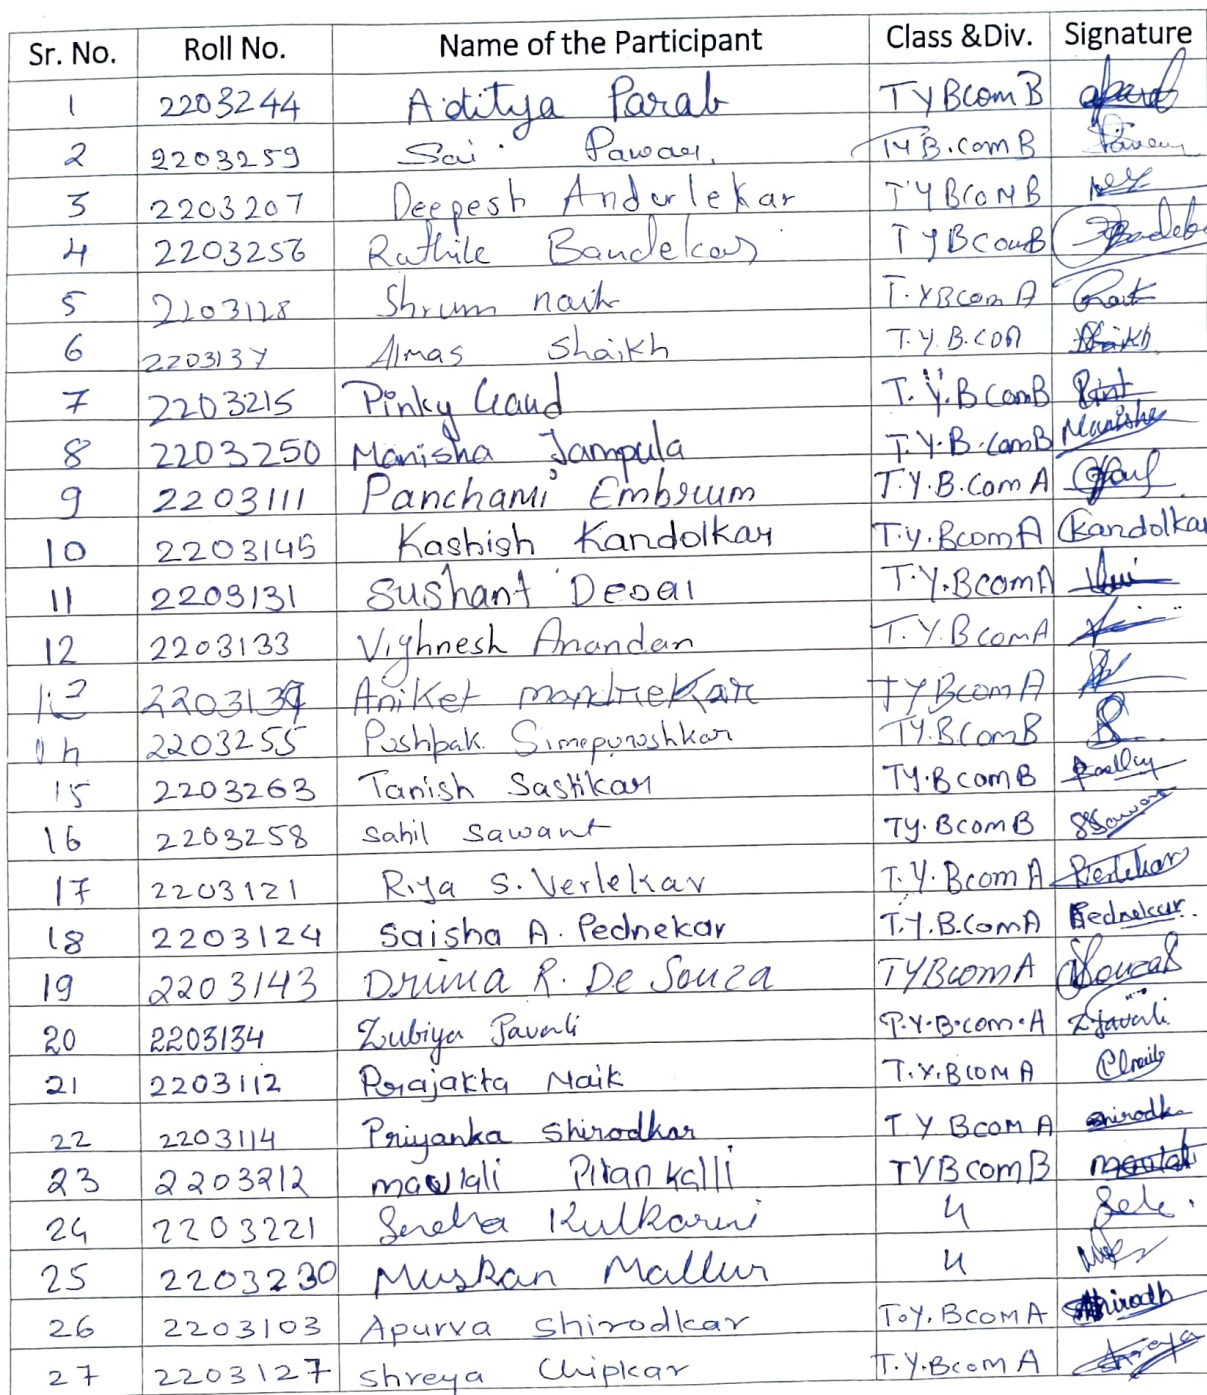 Sr. No. Roll No. Name of the Participant Class &Div. Signature
1 2203244 Aditya Parab TYBComB
2 2203259 Sai Pawar. TYB.ComB
3 2203207 Deepesh Andurlekar TYBCOMB
4 2203256 Bandekar TYBComB
5 2203128 naik T.YBCom A
6 2203137 Almas Shaikh T.Y.B.COA Shaikh
7 2203215 Pinky Gaud T.Y.BComB
8 2203250 Manisha Jampula T.Y.B.ComB Manisha
9 2203111 Panchami Embrum T.Y.B.Com A
10 2203145 Kashish Kandolkar T.Y.BcomA Kandolkar
11 2203131 Sushant Desai T.Y.BcomA
12 2203133 Vighnesh Anandan T.Y.BcomA
13 Aniket mandrekar TYBcomA
14 2203255 Pushpak TY.BComB
15 2203263 Tanish Sastikar TY.BcomB
16 2203258 sahil sawant TY.BcomB
17 2203121 Riya S. Verlekar T.Y.Bcom A Verlekar
18 2203124 Saisha A. Pednekar T.Y.B.ComA Pednekar
19 2203143 R. De Souza TYBcomA
20 2203134 Zubiya Javali T.Y.B.com.A ZJavali
21 2203112 Prajakta Naik T.Y.BCOM A
22 2203114 Priyanka Shirodkar T.Y BCOM A
23 2203212 TYBcomB
24 2203221 Sneha Kulkarni "
25 2203230 Muskan Mallur "
26 2203103 Apurva Shirodkar T.Y.BcomA
27 2203127 Shreya Chipkar T.Y.BcomA Shreya